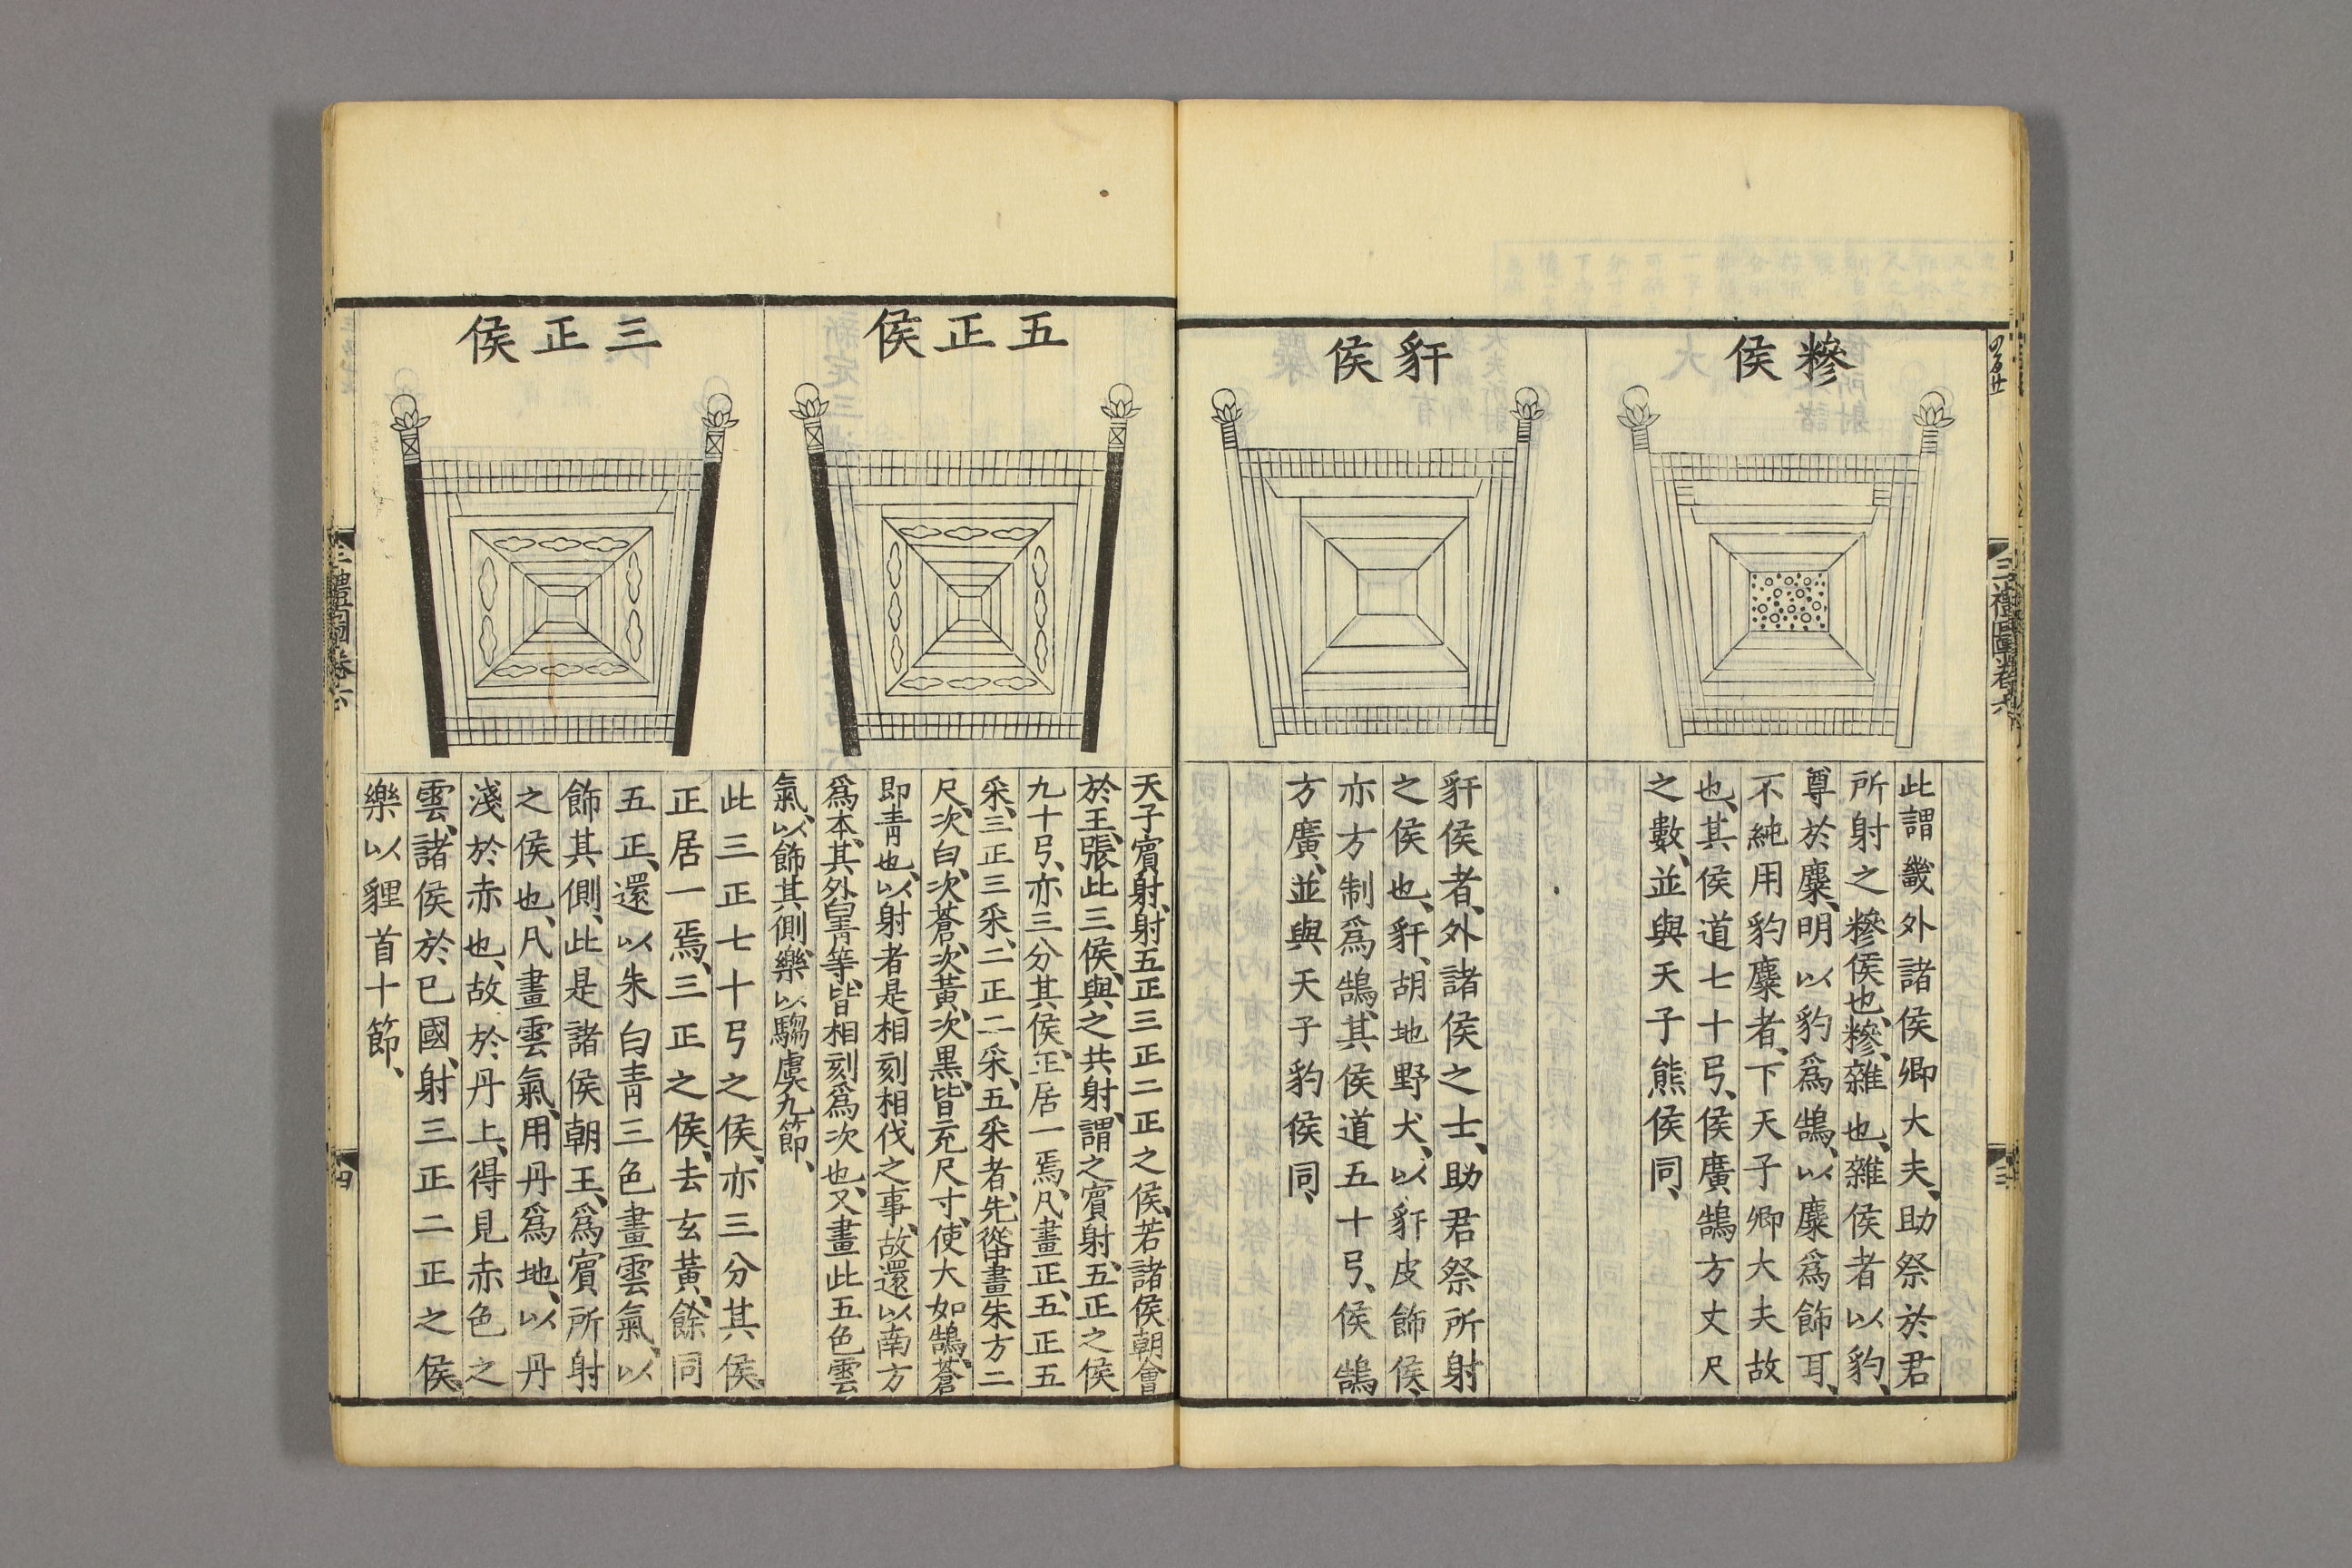 糝侯
此謂畿外諸侯卿大夫、助祭於君
所射之糝侯也、糝、雜也、雜侯者以豹、
尊於麋、明以豹爲鵠、以麋爲飾耳、
不純用豹麋者、下天子卿大夫故
也、其侯道七十弓、侯廣鵠方丈尺
之數、並與天子熊侯同、
豻侯
豻侯者、外諸侯之士、助君祭所射
之侯也、豻、胡地野犬、以豻皮飾侯、
亦方制爲鵠、其侯道五十弓、侯鵠
方廣、並與天子豹侯同、
三禮圖卷六
三
五正侯
天子賓射、射五正三正二正之侯、若諸侯朝會
於王、張此三侯、與之共射、謂之賓射、五正之侯
九十弓、亦三分其侯、正居一焉、凡畫正、五正五
采、三正三采、二正二采、五采者、先從中畫朱方二
尺、次白、次蒼、次黃、次黑、皆充尺寸、使大如鵠、蒼
即靑也、以射者是相刻相伐之事、故還以南方
爲本、其外白靑等、皆相刻爲次也、又畫此五色雲
氣、以飾其側、樂以騶虞九節、
三正侯
此三正七十弓之侯、亦三分其侯、
正居一焉、三正之侯、去玄黃、餘同
五正、還以朱白靑三色畫雲氣、以
飾其側、此是諸侯朝王、爲賓所射
之侯也、凡畫雲氣、用丹爲地、以丹
淺於赤也、故於丹上、得見赤色之
雲、諸侯於已國、射三正二正之侯、
樂以貍首十節、
三禮圖卷六
四